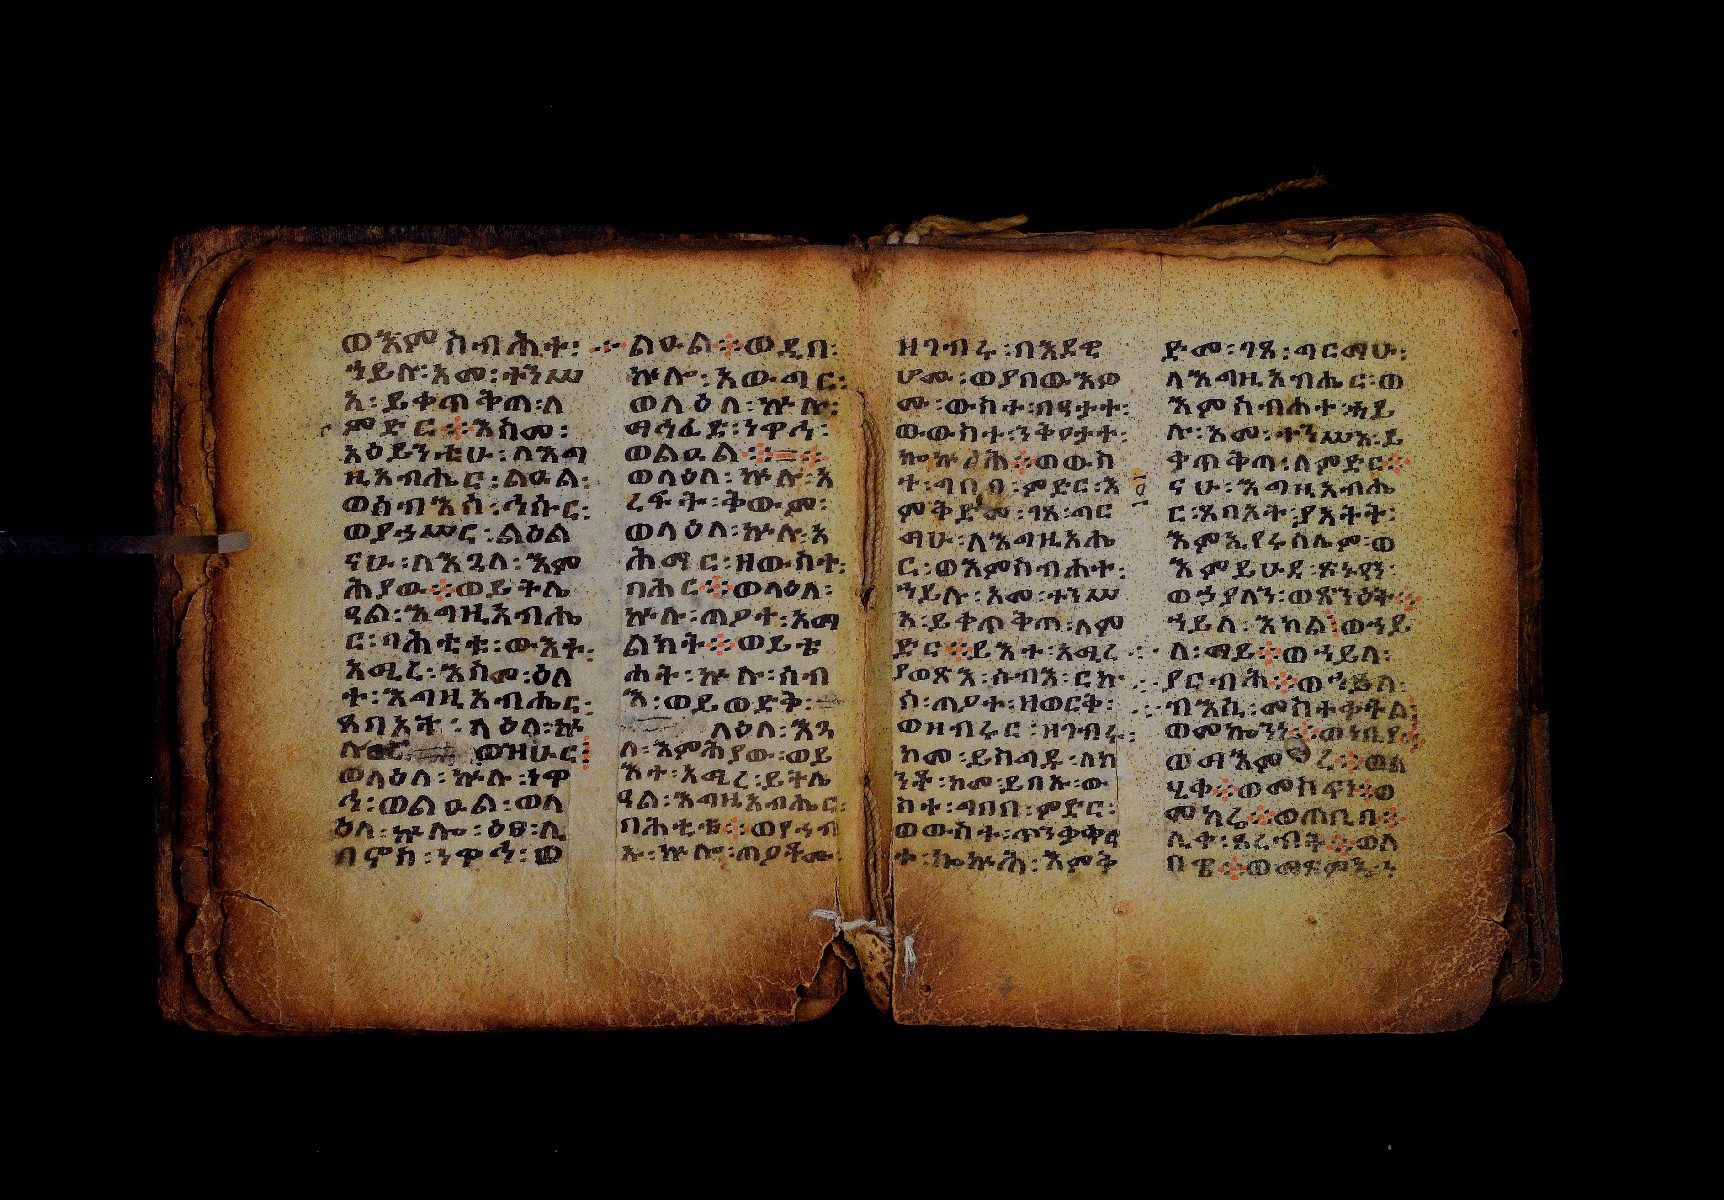 ወእምስብሐተ፡
ኀይሉ፡አመ፡ተንሥ
አ፡ይቀጥቅጣ፡ለ
ምድር፨እስመ፡
አዕይንቲሁ፡ለእግ
ዚአብሔር፡ልዑል፡
ወሰብእሰ፡ኅሱር፡
ወያኃሥር፡ልዕል
ናሁ፡ለእጓለ፡እም
ሕያው፨ወይትሌ
ዓል፡እግዚአብሔ
ር፡ባሕቲቱ፡ውእተ፡
አሚረ፡እስመ፡ዕለ
ተ፡እግዚአብሔር፡
ጸባኦት፡ላዕለ፡ኵ
ሉ ወዝሁር፤
ወላዕለ፡ኵሉ፡ነዋ
ኅ፡ወልዑል፡ወላ
ዕለ፡ኵሎ፡ዕፀ፡ሊ
ባኖስ፡ነዋኅ፡ወ
ልዑል፨ወዲበ፡
ኵሎ፡አውግር፡
ወላዕለ፡ኵሉ፡
ማኅፈድ፡ነዋኅ፡
ወልዑል፨
ወላዕለ፡ኵሉ፡አ
ረፍት፡ቅውም፡
ወላዕለ፡ኵሉ፡አ
ሕማር፡ዘውስተ፡
ባሕር፨ወላዕለ፡
ኵሉ፡ጣዖተ፡አማ
ልክት፨ወይቴ
ሐት፡ኵሉ፡ሰብ
እ፡ወይወድቅ፡
ላዕለ፡እጓ
ለ፡እምሕያው፡ወይ
እተ፡አሚረ፡ይትሌ
ዓል፡እግዚአብሔር፡
ባሕቲቱ፨ወየኀብ
ኡ፡ኵሎ፡ጣዖቶሙ፡
ዘገብሩ፡በእደዊ
ሆሙ፡ወያበውእዎ
ሙ፡ውስተ፡በዓታተ፡
ውውስተ፡ንቅዐታተ፡
ኰኵሕ፨ወውስ
ተ፡ግበበ፡ምድር፡እ
ምቅድመ፡ገጸ፡ጣር
ማሁ፡ለእግዚአሔ
ር፡ወእምስብሐተ፡
ኀይሉ፡አመ፡ተንሥ
አ፡ይቀጥቅጣ፡ለም
ድር፨ይእተ፡አሚረ
ያወጽእ፡ሰብእ፡ርኩ
ሰ፡ጣዖተ፡ዘወርቅ፡
ወዘብሩር፡ዘገብሩ፡
ከመ፡ይስግዱ፡ለከ
ንቱ፡ከመ፡ይበኡ፡ው
ስተ፡ግበበ፡ምድር፡
ወውስተ፡ጥንቃቃ
ተ፡ኰኵሕ፡እምቅ
ድመ፡ገጸ፡ጣርማሁ፡
ለእግዚአብሔር፡ወ
እምስብሐተ፡ኃይ
ሉ፡አመ፡ተንሥአ፡ይ
ቀጥቅጣ፡ለምድር፨
ናሁ፡እግዚአብሔ
ር፡ጸባኦት፡ያአትት፡
እምኢየሩሳሌም፡ወ
እምይሁዳ፡ጽኑዓነ፡
ወኃያላን፡ወጽንዕት፨
ኀይለ፡እክል፤ወኀይ
ለ፡ማይ፨ወኀይለ፡
ያርብሕ፨ወኀያለ፡
ብእሲ፡መስተቃትል፤
ወመኰንነ፨ወነቢየ፨
ወማእምረ፨ወል
ሂቀ፨ወመስፍነ፨ወ
መካሬ፨ወጠቢበ፨
ሊቀ፡ጸረብት፨ወለ
በዌ፨ወመጽምኤነ